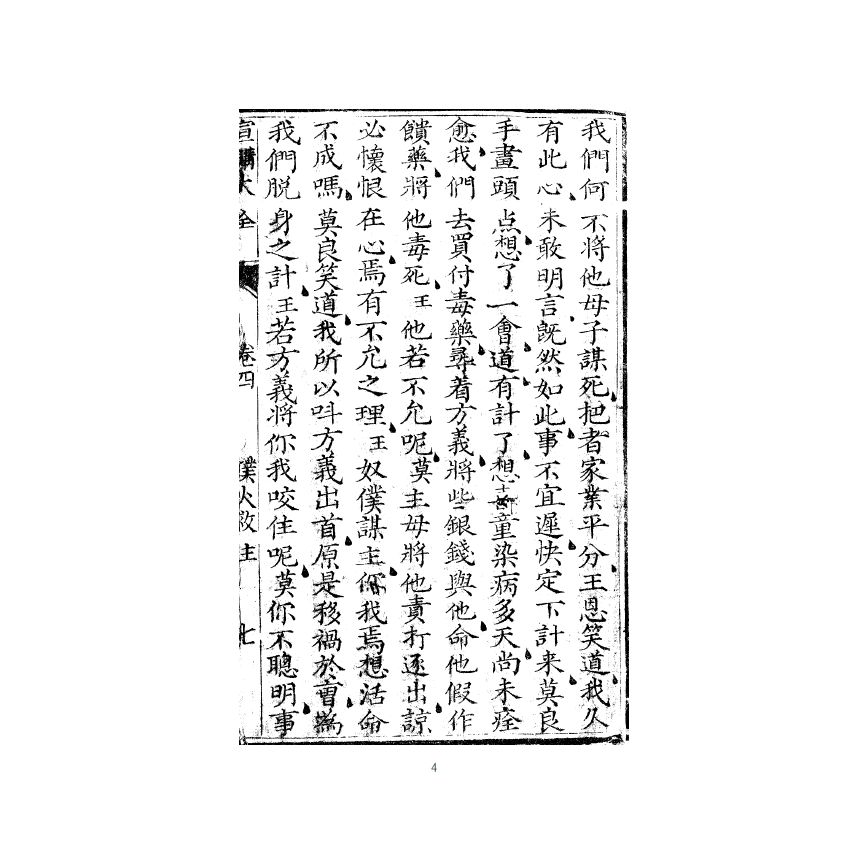 我們何不將他母子謀死把者家業平分王恩笑道我久
有此心未敢明言既然如此事不宜遲快定下計來莫良
手畫頭点想了一會道有計了想十龄童染病多天尚未痊
愈我們去買付毒藥尋着方義將些銀錢與他命他假作
饋藥將他毒死王他若不允呢莫主母將他責打逐出諒
必懷恨在心焉有不允之理王奴僕謀主你我焉想活命
不成嗎莫良笑道我所以呌方義出首原是移禍於
我們脫身之計王若方義將你我咬住呢莫你不聰明事
宣講大全 卷四 僕火救主 七
4